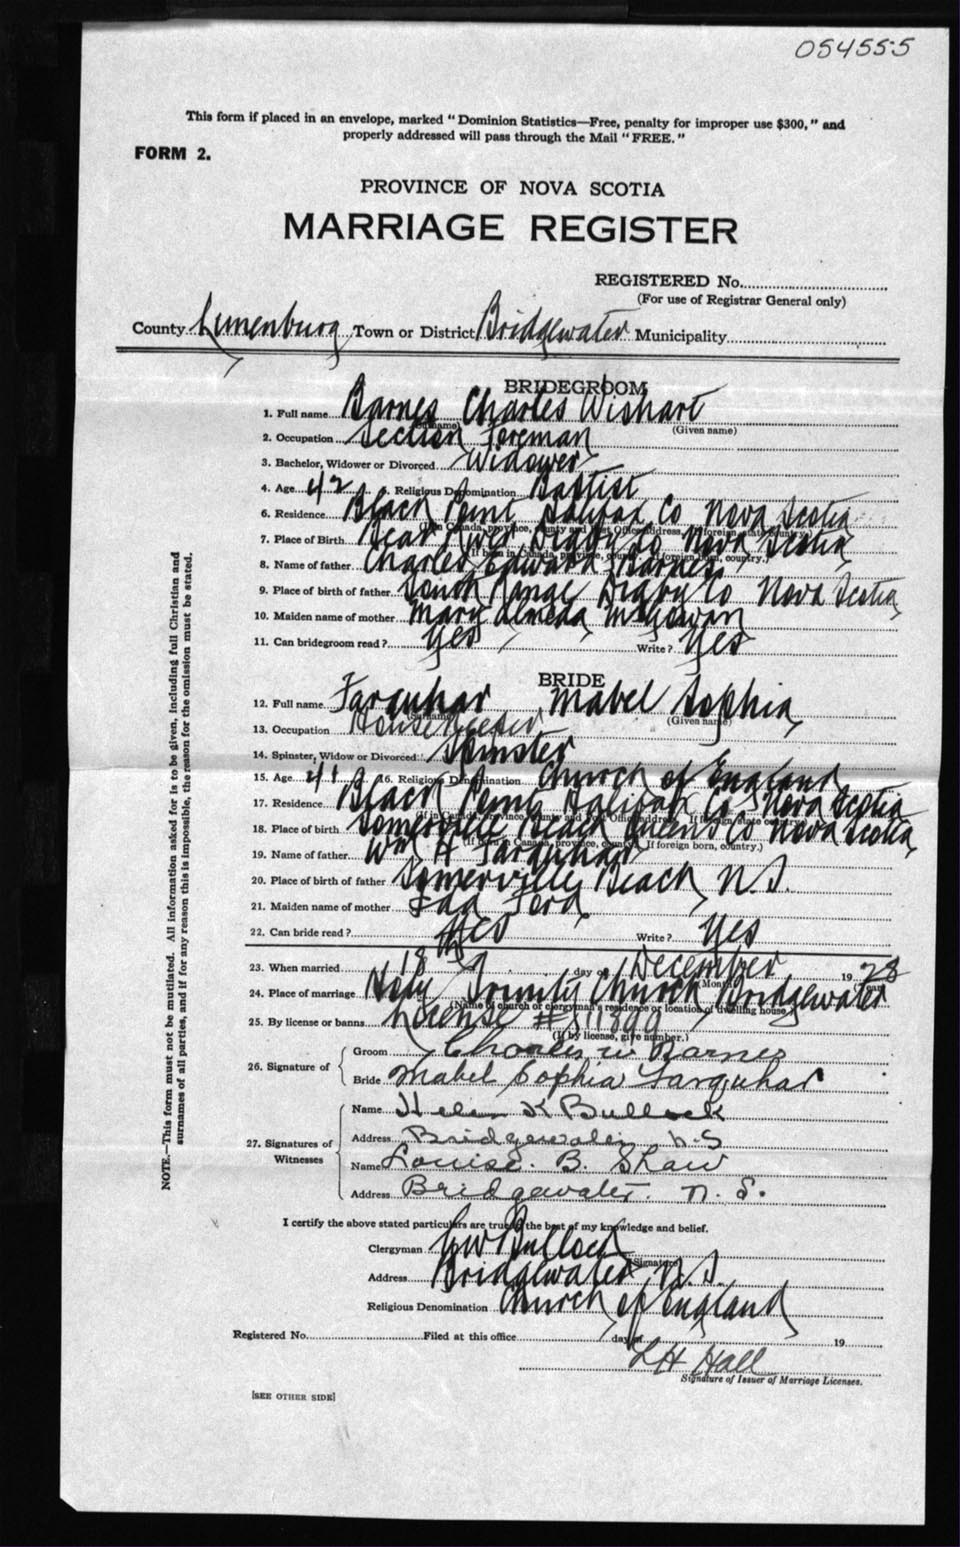 054555
This form if placed in an envelope, marked "Dominion Statistics—Free, penalty for improper use $300," and
properly addressed will pass through the Mail "FREE."
FORM 2.
PROVINCE OF NOVA SCOTIA
MARRIAGE REGISTER
REGISTERED No.
(For use of Registrar General only)
County Lunenburg Town or District Bridgewater Municipality
BRIDEGROOM
1. Full name Barnes Charles Wishart
(Surname) (Given name)
2. Occupation Section Foreman
3. Bachelor, Widower or Divorced Widower
4. Age 42 5. Religious Denomination Baptist
6. Residence Black Point Halifax Co Nova Scotia
(If in Canada, province, county and Post Office address. If foreign, state country.)
7. Place of Birth Bear River Digby Co Nova Scotia
(If born in Canada, province, county. If foreign born, country.)
8. Name of father Charles Edward Barnes
9. Place of birth of father South Range Digby Co Nova Scotia
10. Maiden name of mother Mary Almeda McGowan
11. Can bridegroom read? Yes Write? Yes
BRIDE
12. Full name Farquhar Mabel Sophia
(Surname) (Given name)
13. Occupation Housekeeper
14. Spinster, Widow or Divorced Spinster
15. Age 41 16. Religious Denomination Church of England
17. Residence Black Point Halifax Co Nova Scotia
(If in Canada, province, county and Post Office address. If foreign state country.)
18. Place of birth Somerville Beach Queens Co Nova Scotia
(If born in Canada, province, county. If foreign born, country.)
19. Name of father Wm H Farquhar
20. Place of birth of father Somerville Beach N.S.
21. Maiden name of mother Ford
22. Can bride read? Yes Write? Yes
23. When married 18 day of December 1928
(Month) (Year)
24. Place of marriage Holy Trinity Church Bridgewater
(Name of church or clergyman's residence or location of dwelling house.)
25. By license or banns License #
(If by license, give number.)
26. Signature of Groom Charles W Barnes
Bride Mabel Sophia Farquhar
27. Signatures of Witnesses
Name Helen K Bullock
Address Bridgewater N.S
Name Louise. B. Shaw
Address Bridgewater. N. S.
I certify the above stated particulars are true to the best of my knowledge and belief.
Clergyman Bullock
(Signature)
Address Bridgewater N.S.
Religious Denomination Church of England
Registered No. Filed at this office day of 19
L H Hall
Signature of Issuer of Marriage Licenses.
[SEE OTHER SIDE]
NOTE.—This form must not be mutilated. All information asked for is to be given, including full Christian and
surnames of all parties, and if for any reason this is impossible, the reason for the omission must be stated.